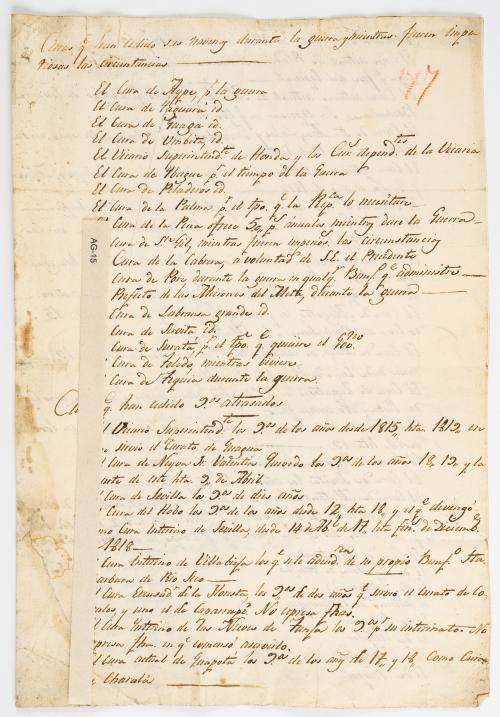 Curas, q.e han cedido sus novenos durante la guerra y mientras fueren impe
riosas las circunstancias
El Cura de Aype, p.r la guerra
El Cura de Yaguará id.
El Cura de Guagá id.
El Cura de Umbita, id.
El Vicario Superintend.te de Honda y los Cur.s depend.tes de la Vicaria
El Cura de Ybague p.r el tiempo de la Guerra
El Cura de Peladeros id.
El Cura de la Palma p.r el tpo. q.e la Rep.ca lo necesitare
Cura de la Peña ofrece 50 p.s anuales mientras dure la Guerra
Cura de S.n Gil, mientras fueren imperios. las circunstancias
Cura de la Cabrera, á voluntad de S.E. el Presidente
Cura de Pore durante la guerra en qualq.r Benef.o q.e administre
Prefecto de las Misiones del Meta, durante la guerra
Cura de Labranza grande id.
Cura de Servita id.
Cura de Surata, p.r el tpo. q.e quiciere el Gov.no
Cura de Toledo, mientras viviere
Cura de Tequia durante la guerra.
q.e han cedido 9.os atrasados
Vicario Superintend.te los 9.os de los años desde 1815, hta. 1819, en
sirvió el Curato de Guagua
Cura de Neyva Dr. Valentin Quevedo los 9.os de los años 18, 19, y la
parte de este hta. 9 de Abril.
Cura de Sevilla los 9.os de dies años
Cura del Hobo los 9.os de los años desde 12, hta. 18, y el q.e devengó
mo Cura Interino de Sevilla, desde 14 de de 17, hta. fin. de Diciemb.e
1818
Cura Interino de Villavieja los q.e se le adeud.n de su propio Benef.o Sta.
Barbara de Rio Seco
Cura de los 9.os de dos años q.e sirvió el Curato de Co
y uno el de Caparrapí. No expresa fhas.
Cura Interino de las Nieves de Tunja los 9.os p.r su interinato. No
expresa fha. en q.e comenzó á servirlo.
Cura actual de Guapota los 9.os de los años de 17, y 18, como Cura
Charalá
AG-15